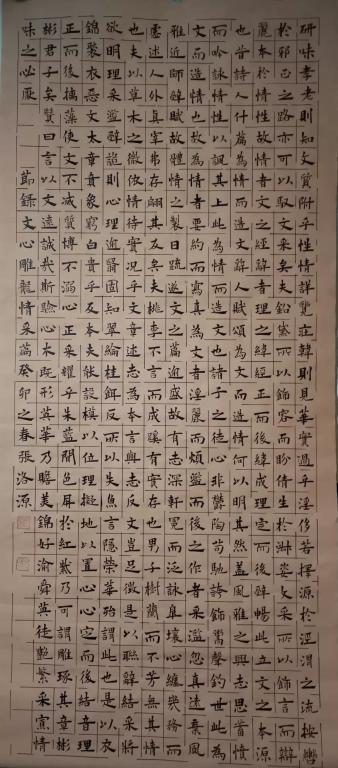 研味李老則知文質附乎性情詳覽莊韓則見華實過乎淫侈若擇源於涇渭之流按轡
於邪正之路亦可以馭文采矣夫鉛黛所以飾容而盼倩生於淑姿文采所以飾言而辯
麗本於情性故情者文之經辭者理之緯經正而後緯成理定而後辭暢此立文之本源
也昔詩人什篇為情而造文辭人賦頌為文而造情何以明其然蓋風雅之興志思蓄憤
而吟詠情性以諷其上此為情而造文也諸子之徒心非鬱陶苟馳誇飾鬻聲釣世此為
文而造情也故為情者要約而寫真為文者淫麗而煩濫而後之作者采濫忽真遠棄風
雅近師辭賦故體情之製日疏逐文之篇逾盛故有志深軒冕而泛詠皋壤心纏幾務而
虛述人外真宰弗存翩其反矣夫桃李不言而成蹊有實存也男子樹蘭而不芳無其情
也夫以草木之微依情待實況乎文章述志為本言與志反文豈足徵是以聯辭結采將
欲明理采濫辭詭則心理逾翳固知翠綸桂餌反所以失魚言隱榮華殆謂此也是以衣
錦褧衣惡文太章賁象窮白貴乎反本夫能設模以位理擬地以置心心定而後結音理
正而後摛藻使文不滅質博不溺心正采耀乎朱藍間色屏於紅紫乃可謂雕琢其章彬
彬君子矣贊曰言以文遠誠哉斯驗心術既形英華乃贍吳錦好渝舜英徒艷繁采寡情
味之必厭 節錄文心雕龍情采篇癸卯之春張洛源